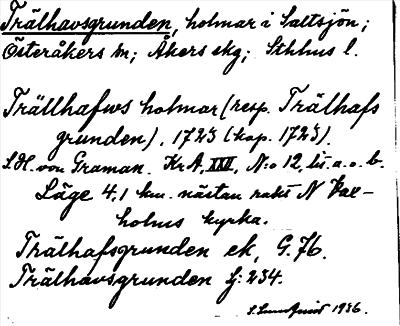 Trälhavsgrunden, holmar i Saltsjön;
Österåkers sn; Åkers skg; Sthlms l.
Trällhafws holmar (resp. Trälhafs
grunden), 1725 (kop. 1725).
S.H. von Graman. KrA, XXII, N:o 12, lit. a. o. b.
Läge 4,1 km. nästan rakt N Vax-
holms kyrka.
Trälhafsgrunden ek, G.76.
Trälhavsgrunden fj: 234.
1936.